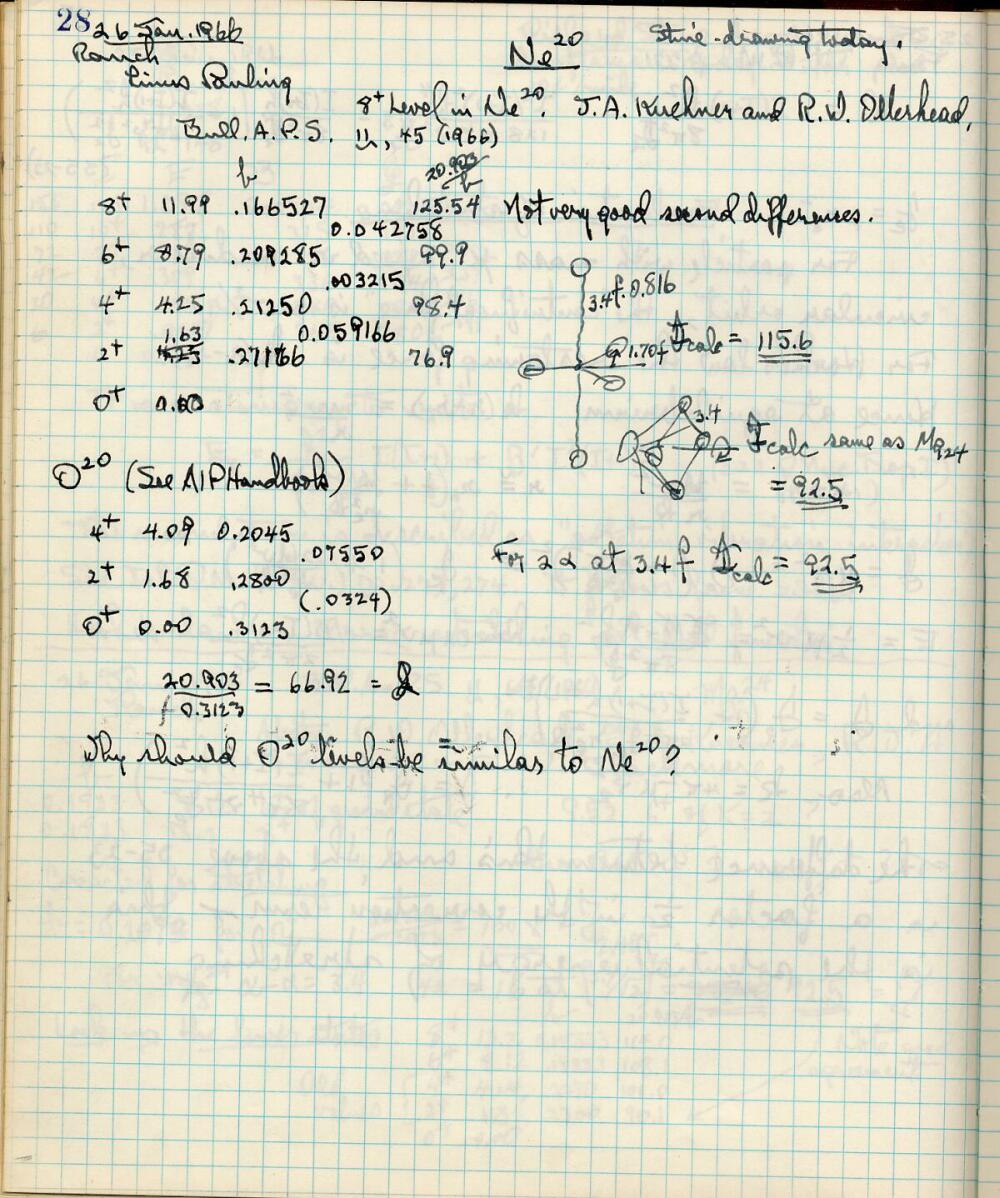 28 26 Jan. 1966
Ne²⁰
Ranch
Linus Pauling
8⁺ Level in Ne²⁰. J.A. Kuehner and R.W. Ollerhead,
Bull. A.P.S. 11, 45 (1966)
b 20.903/b
8⁺ 11.99 .166527 125.54 Not very good second differences.
0.042758
6⁺ 8.79 .209285 99.9
.003215
3.4f. 0.816
4⁺ 4.25 .21250 98.4
1.63 0.059166
2⁺ .27166 76.9
1.70f I calc = 115.6
0⁺ 0.00
3.4
I calc same as Mg24
= 92.5
O²⁰ (See AIP Handbook)
4⁺ 4.09 0.2045
.07550
For 2α at 3.4f I calc = 92.5
2⁺ 1.68 .2800
(.0324)
0⁺ 0.00 .3123
20.903/0.3123 = 66.92 =
Why should O²⁰ levels be similar to Ne²⁰?